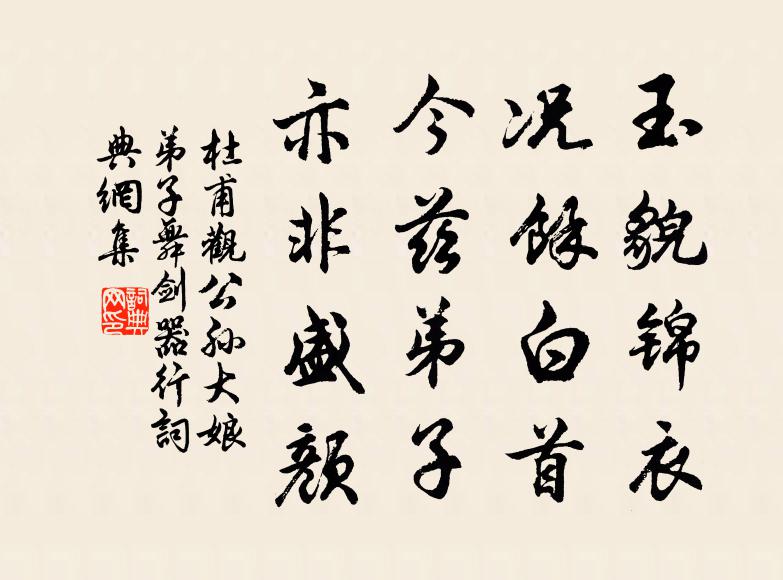 玉貌锦衣
况餘白首
今茲弟子
亦非盛顏
杜甫觀公孙大娘
弟子舞剑器行詞
典網集
詞典
网印